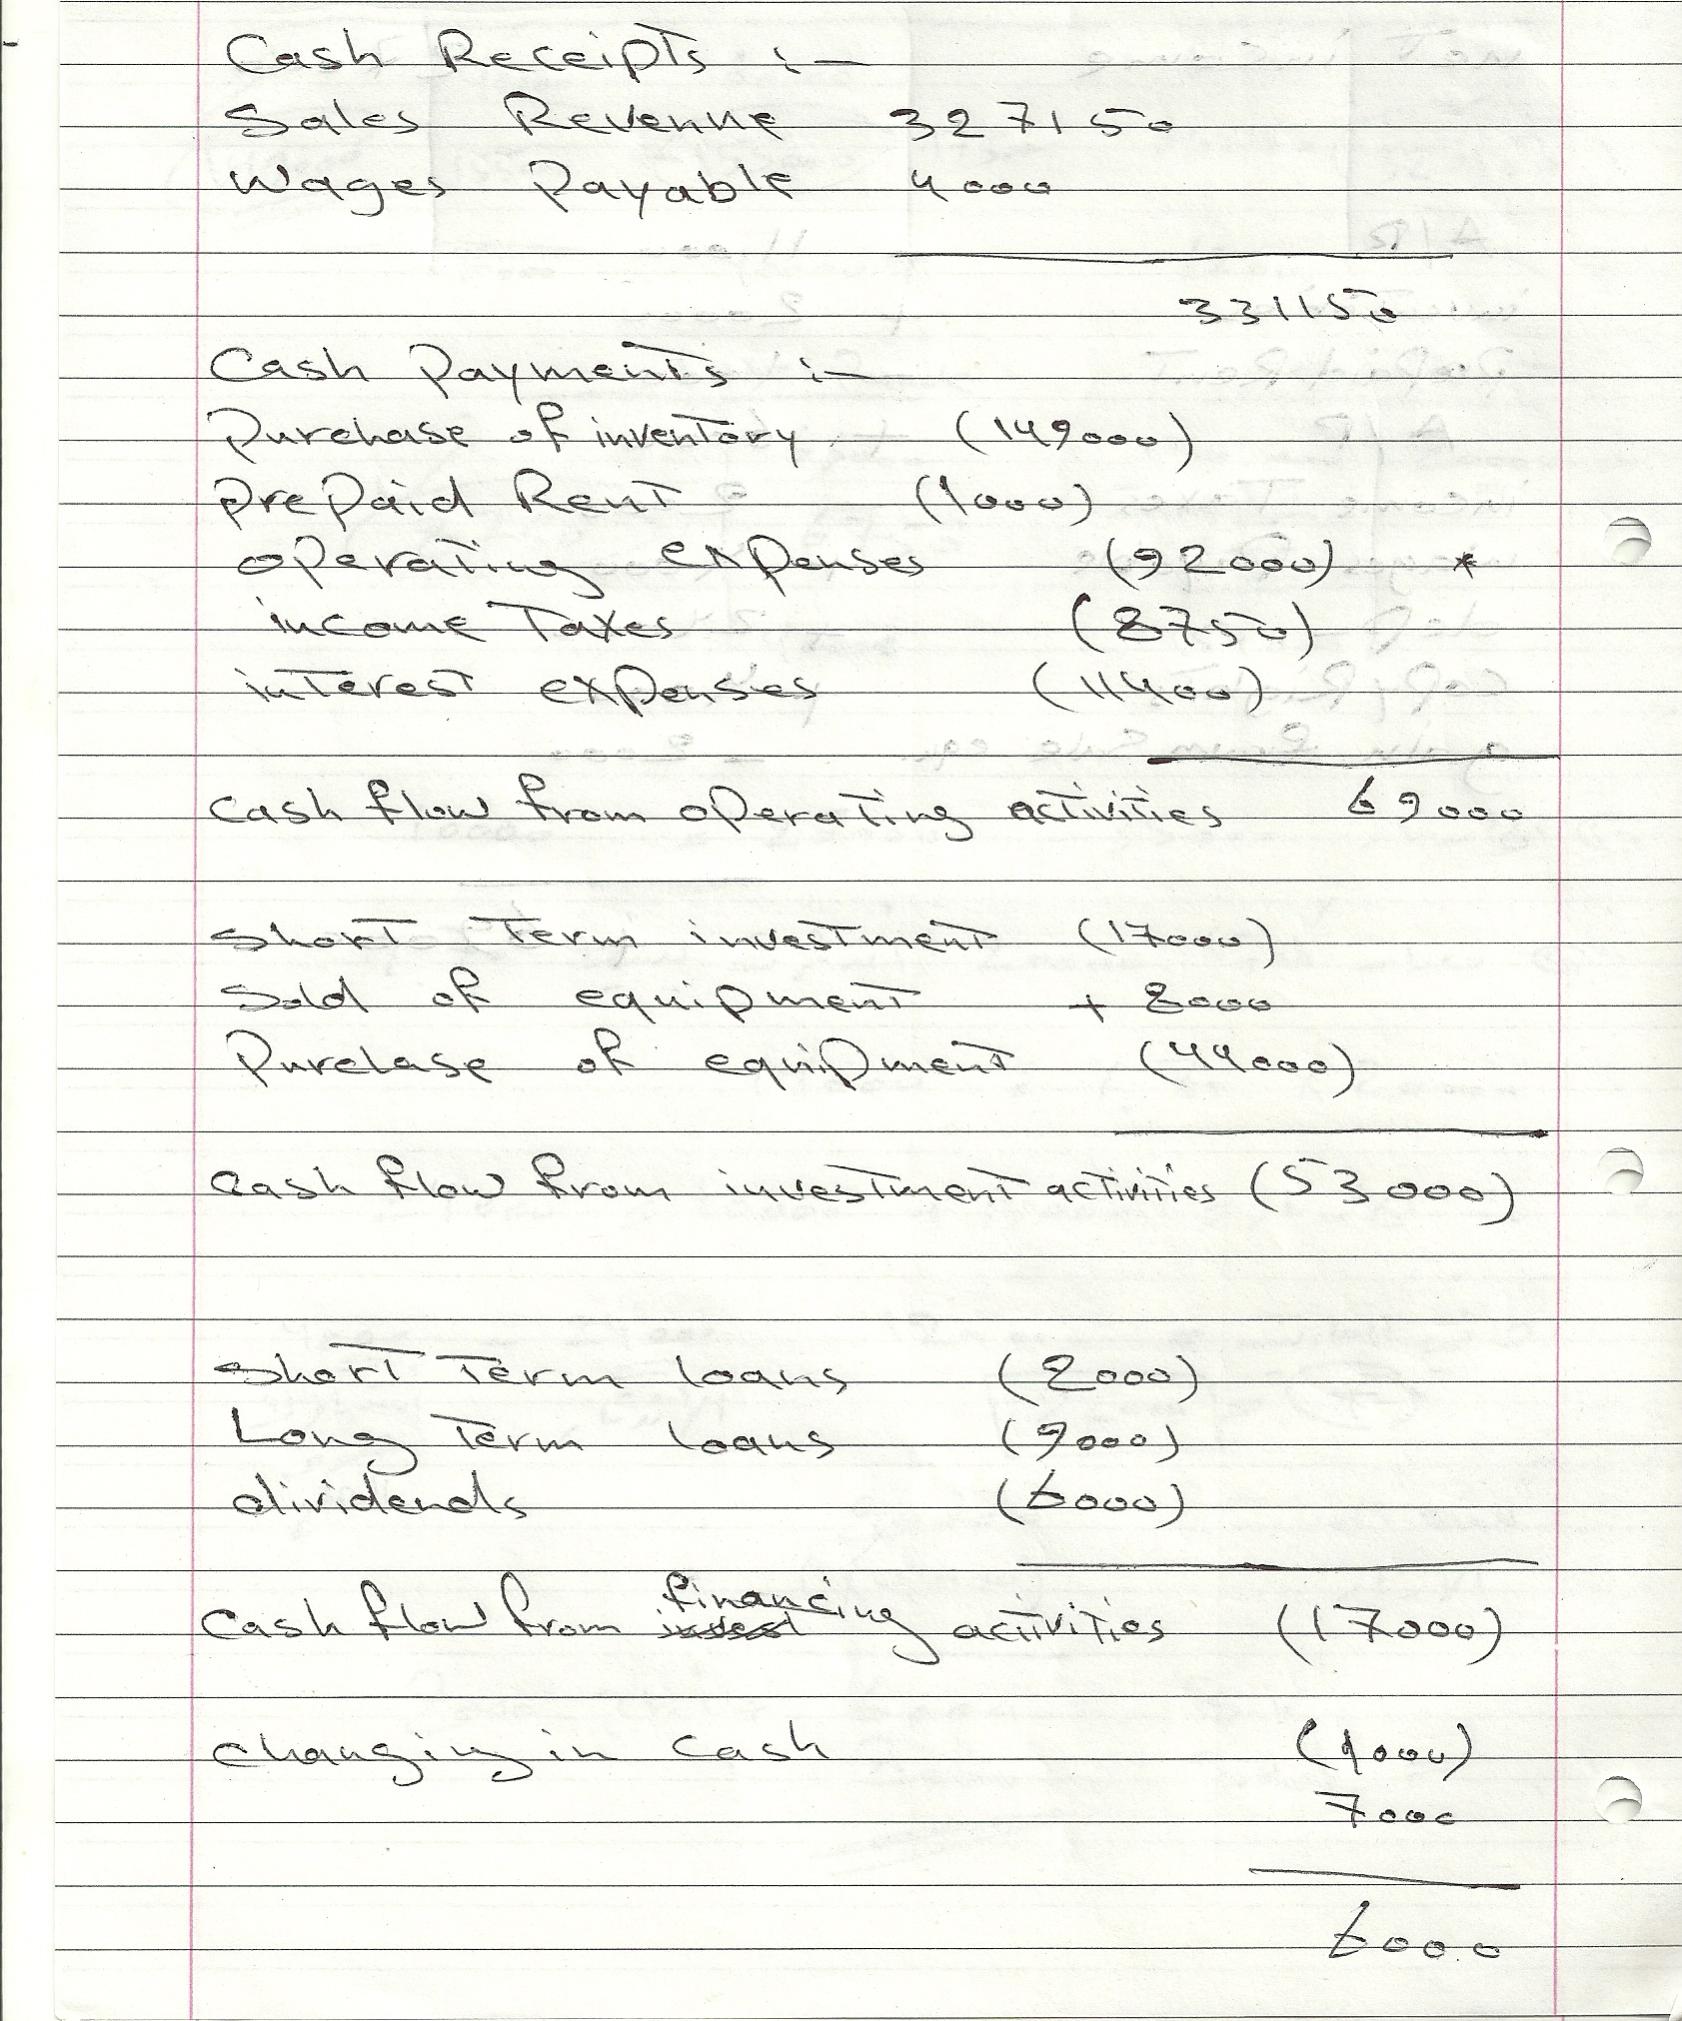 Cash Receipts :-
Sales Revenue 327150
Wages Payable 4000
331150
Cash Payments :-
Purchase of inventory (149000)
prepaid Rent (1000)
operating expenses (92000) *
income Taxes (8750)
interest expenses (11400)
Cash flow from operating activities 69000
Short Term investment (17000)
Sold of equipment + 8000
Purchase of equipment (44000)
Cash flow from investment activities (53000)
Short Term loans (2000)
Long Term loans (9000)
dividends (6000)
financing
Cash flow from invest activities (17000)
changing in cash (1000)
7000
6000